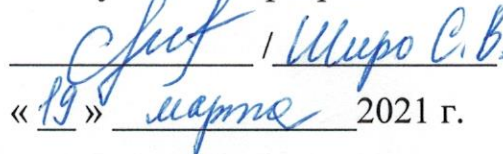 / Широ С.В.
« 19 » марта 2021 г.